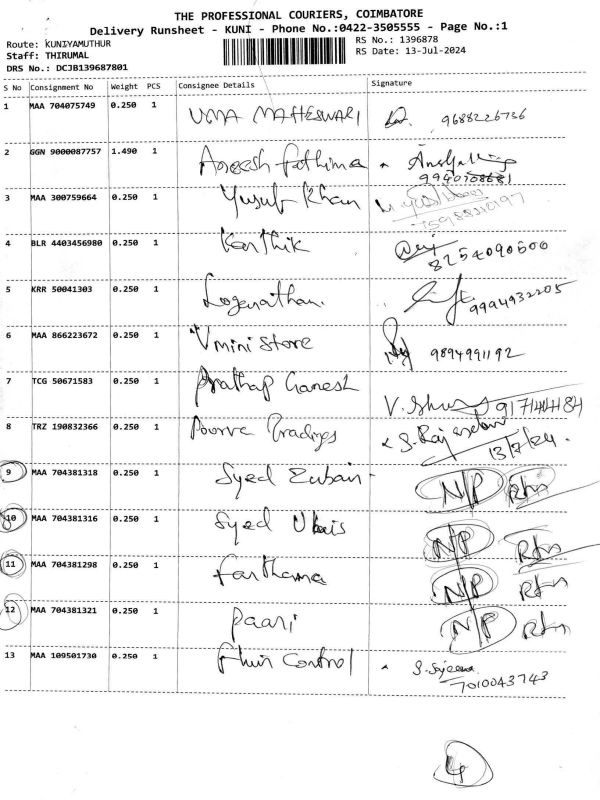 THE PROFESSIONAL COURIERS, COIMBATORE
Delivery Runsheet - KUNI - Phone No.:0422-3505555 - Page No.:1
Route: KUNIYAMUTHUR
RS No.: 1396878
Staff: THIRUMAL
RS Date: 13-Jul-2024
DRS No.: DCJB139687801
S No Consignment No Weight PCS Consignee Details Signature
1 MAA 704075749 0.250 1 UMA MAHESWARI 9688226736
2 GGN 9000087757 1.490 1 Aneesh Fathima
3 MAA 300759664 0.250 1 Yusuf Khan
4 BLR 4403456980 0.250 1 Karthik 8254090500
5 KRR 50041303 0.250 1 Loganathan. 9994932205
6 MAA 866223672 0.250 1 V mini Store 9894991192
7 TCG 50671583 0.250 1 Prathap Ganesh
8 TRZ 190832366 0.250 1 Poorva Tradings 13/7/24.
9 MAA 704381318 0.250 1 Syed Zubair N/P Rtn
10 MAA 704381316 0.250 1 Syed N/P Rtn
11 MAA 704381298 0.250 1 Farthama N/P Rtn
12 MAA 704381321 0.250 1 Paari N/P Rtn
13 MAA 109501730 0.250 1 Control 7010043743
4